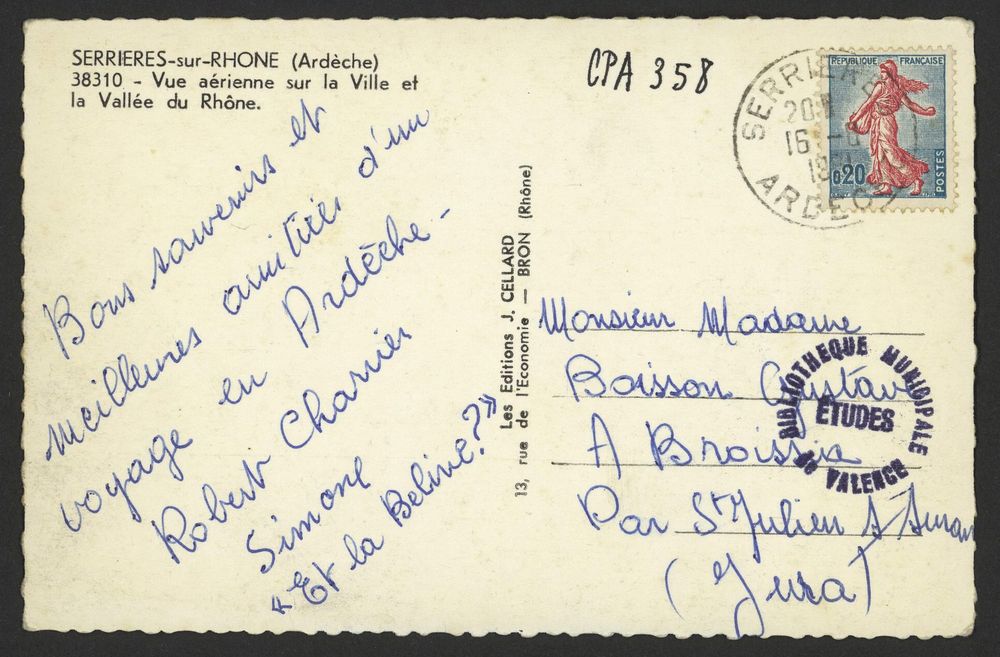 SERRIERES-sur-RHONE (Ardèche)
38310 - Vue aérienne sur la Ville et
la Vallée du Rhône.
CPA 358
RÉPUBLIQUE FRANÇAISE
0,20
POSTES
SERRIERES
16
ARDECHE
Bons souvenirs et
meilleures amitiés d'un
voyage en Ardèche -
Robert Charnier
Simone
"Et la Beline?"
Les Editions J. CELLARD
13, rue de l'Economie — BRON (Rhône)
Monsieur Madame
Boisson Gustave
A Broissia
Par St Julien s/ Suran
(Jura)
BIBLIOTHEQUE MUNICIPALE
ÉTUDES
de VALENCE